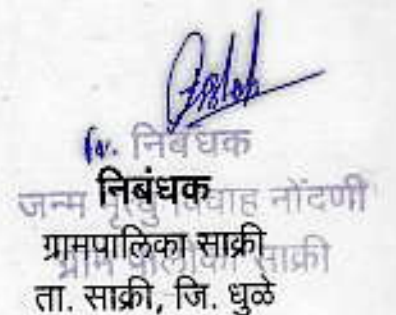 निबंधक
निबंधक
जन्म मृत्यु विवाह नोंदणी
ग्रामपालिका साक्री
ग्राम पालीका साक्री
ता. साक्री, जि. धुळे